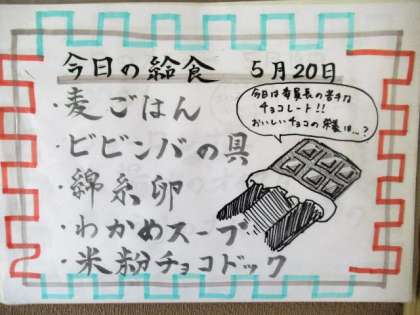 今日の給食 5月20日
・麦ごはん
・ビビンバの具
・綿糸卵
・わかめスープ
・米粉チョコドック
今日は委員長の苦手な
チョコレート!!
おいしいチョコの栄養は…?